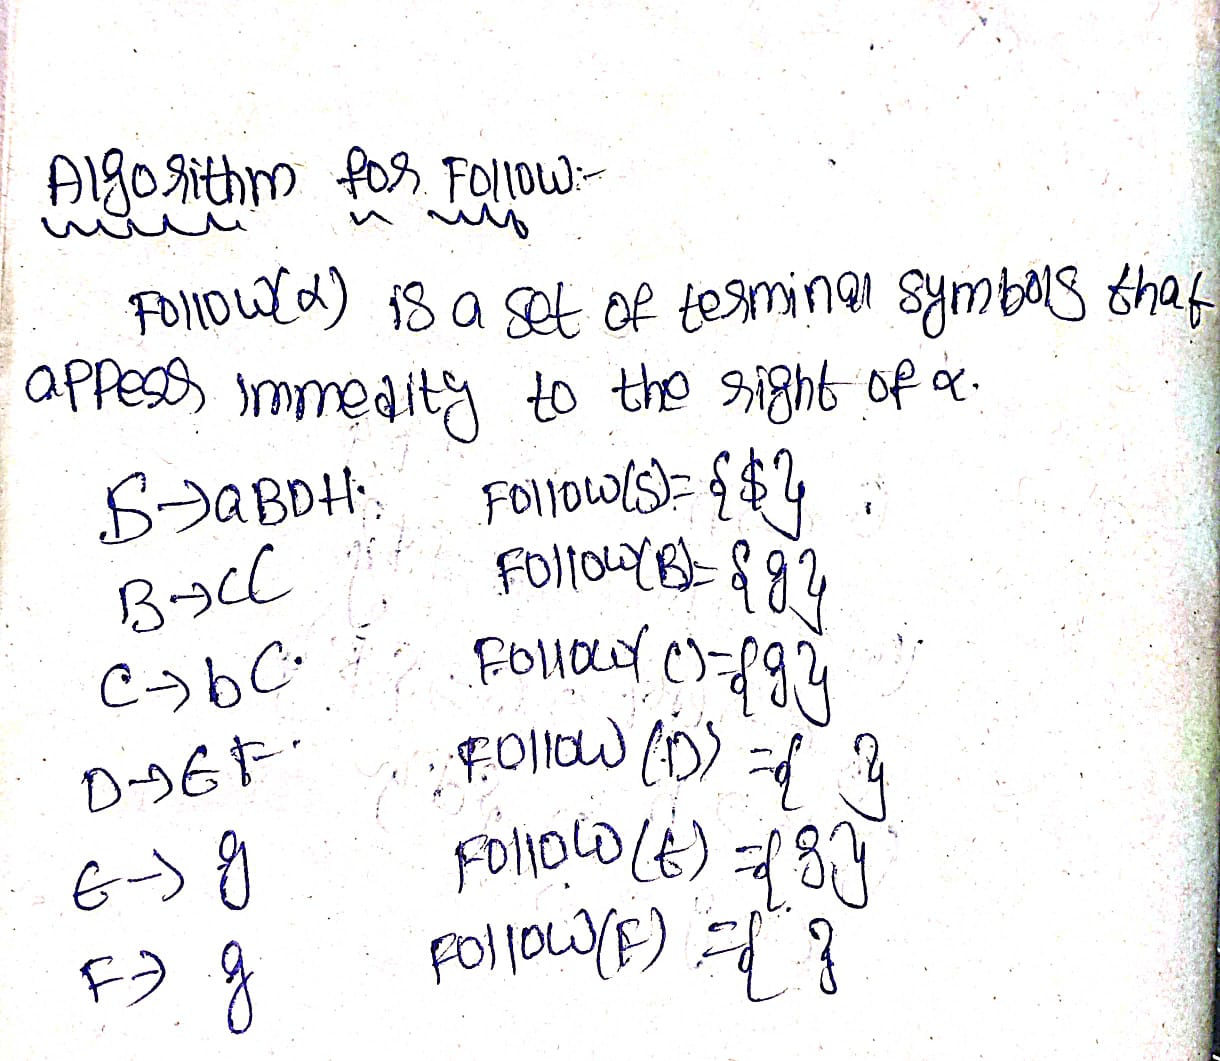 Algorithm for Follow:-
Follow(α) is a set of terminal symbols that
appears immedity to the right of α.
S→aBDH Follow(S)={$}
B→cC Follow(B)={g}
C→bC Follow(C)={g}
D→EF Follow(D)={ }
E→g Follow(E)={g}
F→g Follow(F)={ }